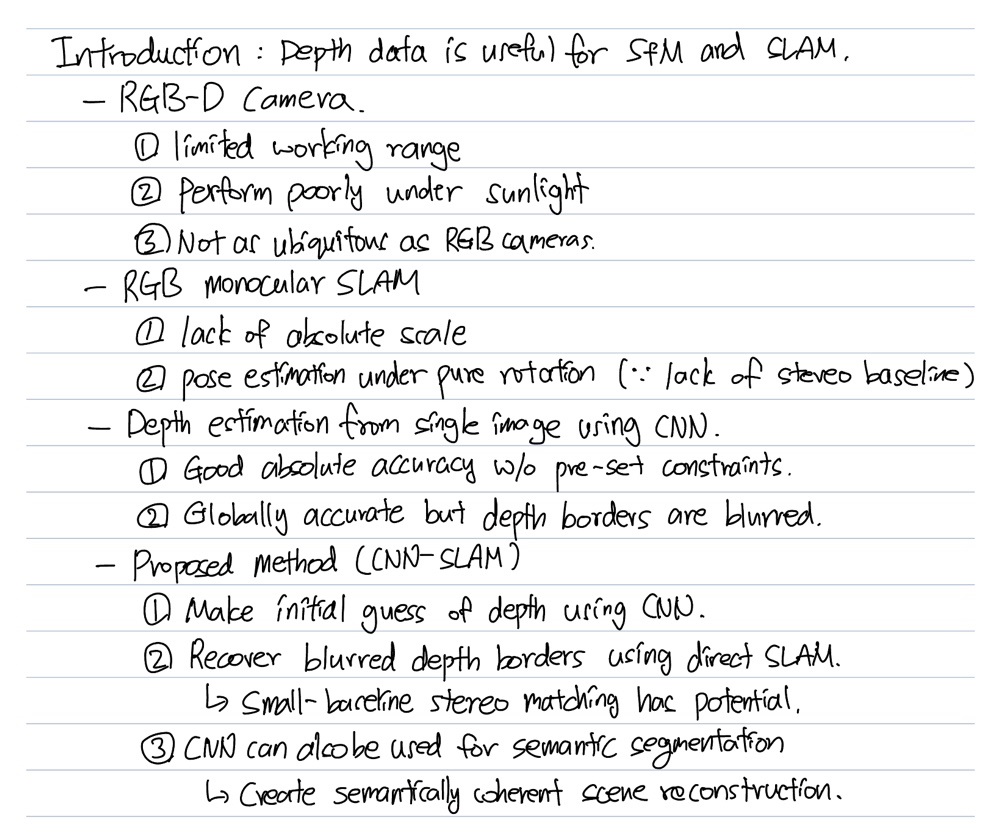 Introduction : Depth data is useful for SfM and SLAM.
– RGB-D Camera.
① limited working range
② Perform poorly under sunlight
③ Not as ubiquitous as RGB cameras.
– RGB monocular SLAM
① lack of absolute scale
② pose estimation under pure rotation (∵ lack of stereo baseline)
– Depth estimation from single image using CNN.
① Good absolute accuracy w/o pre-set constraints.
② Globally accurate but depth borders are blurred.
– Proposed method (CNN-SLAM)
① Make initial guess of depth using CNN.
② Recover blurred depth borders using direct SLAM.
↳ Small-baseline stereo matching has potential.
③ CNN can also be used for semantic segmentation
↳ Create semantically coherent scene reconstruction.